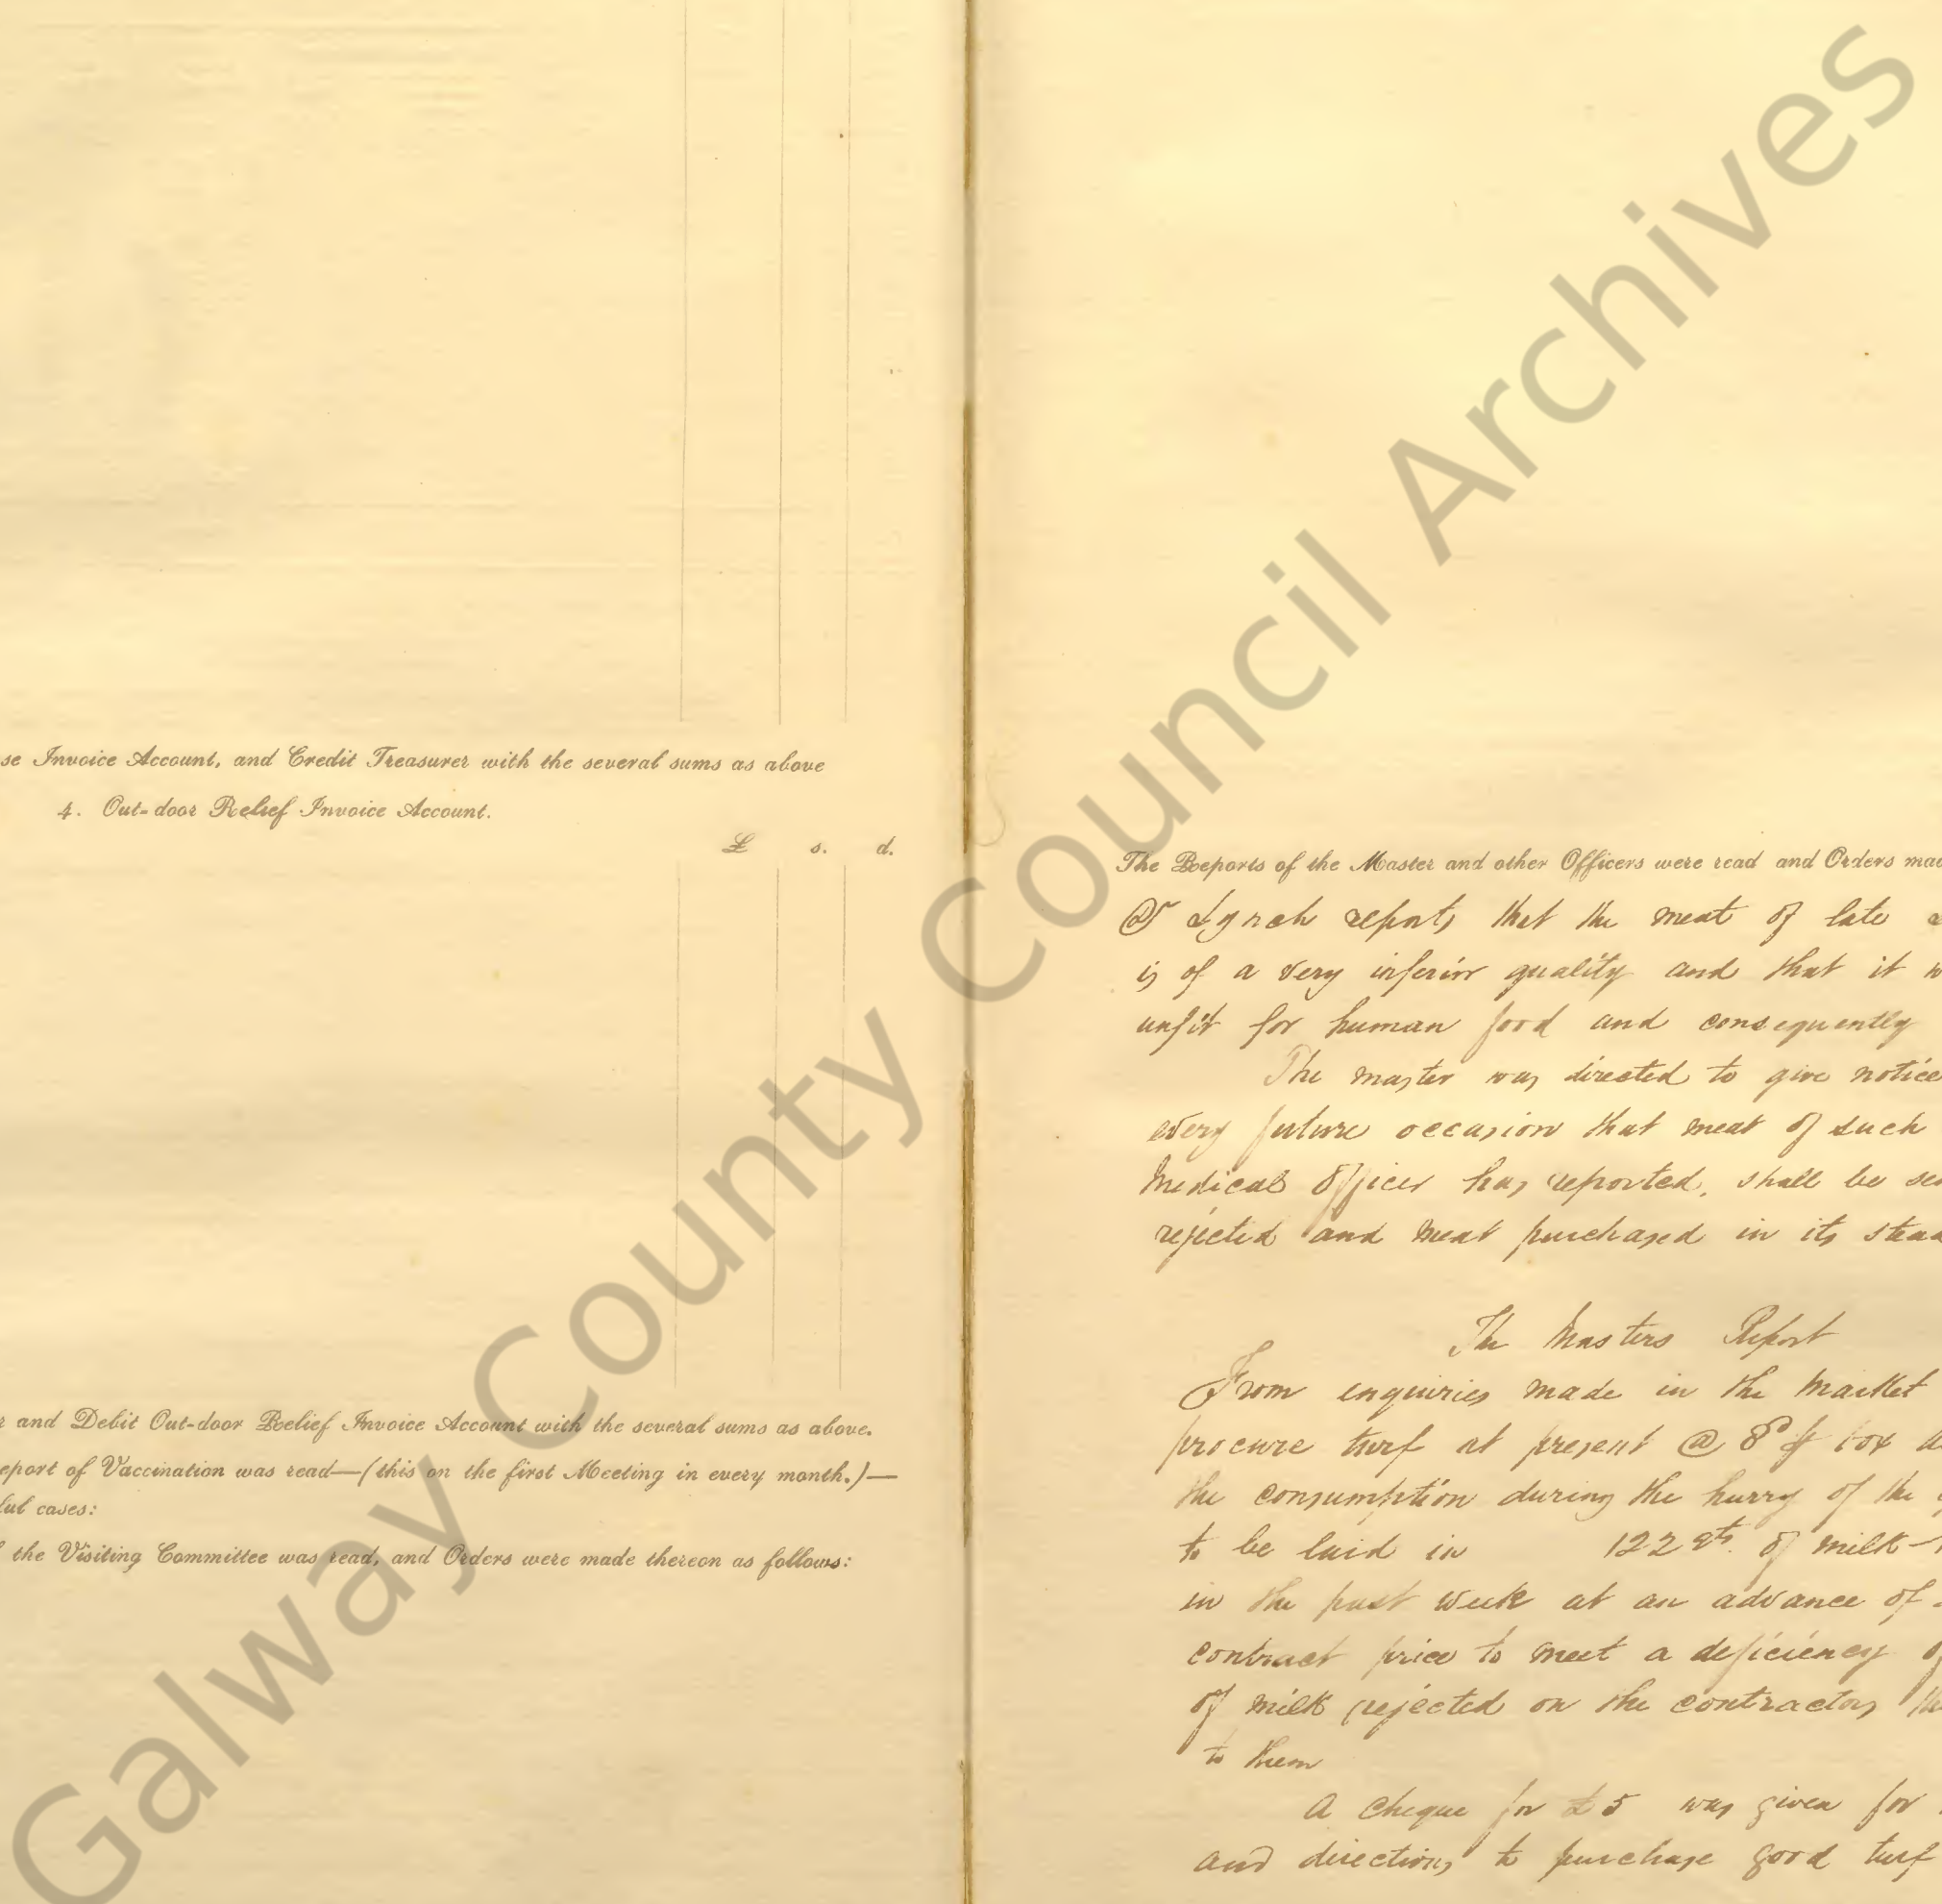 se Invoice Account, and Credit Treasurer with the several sums as above
4. Out-door Relief Invoice Account.
£ s. d.
r and Debit Out-door Relief Invoice Account with the several sums as above.
eport of Vaccination was read—(this on the first Meeting in every month.)—
ful cases:
the Visiting Committee was read, and Orders were made thereon as follows:
The Reports of the Master and other Officers were read and Orders mad
Dr Lynch reports that the meat of late
is of a very inferior quality and that it w
unfit for human food and consequently
The master was directed to give notice
every future occasion that meat of such
Medical Officer has reported, shall be se
rejected and meat purchased in its stead
The Masters Report
From enquiries made in the Market
procure turf at present @ 8d box
the consumption during the hurry of the
to be laid in 122 qts. of milk
in the past week at an advance of
contract price to meet a deficiency of
of milk rejected on the contractors
to them
A cheque for £5 was given for
and directions to purchase good turf
Galway County Council Archives